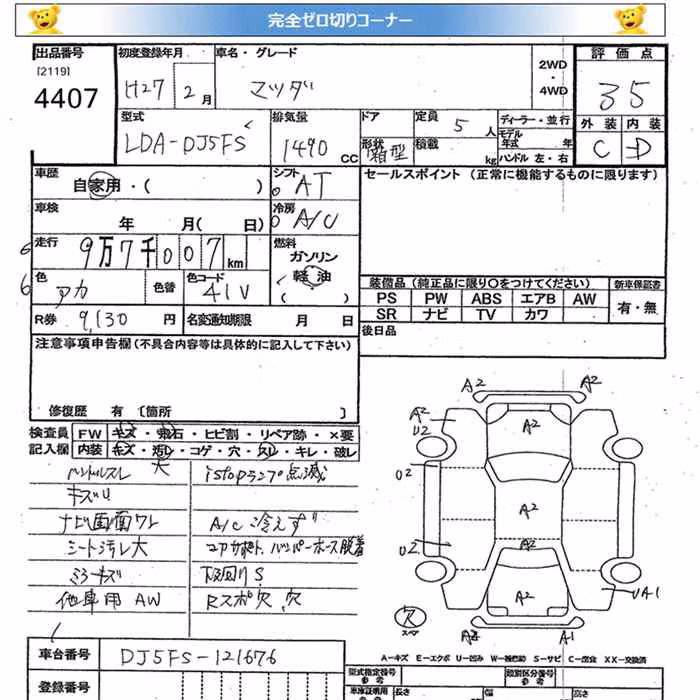 完全ゼロ切りコーナー
出品番号
[2119]
4407
初度登録年月
H27 2 月
車名・グレード
マツダ
2WD
・
4WD
評価点
35
外装 内装
C D
型式
LDA-DJ5FS
排気量
1490 CC
ドア
形状
箱型
定員
5 人
積載
kg
ディーラー・並行
モデル
年式 年
ハンドル 左・右
車歴
自家用・( )
シフト
AT
セールスポイント (正常に機能するものに限ります)
車検
年 月( 日)
冷房
A/C
走行
9万7千007 km
燃料
ガソリン
軽油
( )
色
アカ
色替
色コード
41V
装備品(純正品に限り○をつけてください)
新車保証書
PS PW ABS エアB AW
有・無
SR ナビ TV カワ
R券 9,130 円
名変通知期限 月 日
後日品
注意事項申告欄(不具合内容等は具体的に記入して下さい)
修復歴 有 [箇所 ]
検査員 FW キズ・飛石・ヒビ割・リペア跡・×要
記入欄 内装 キズ・汚レ・コゲ・穴・スレ・キレ・破レ
ハンドルスレ 大
istopランプ点滅
キズU
ナビ画面ワレ
A/C 冷えず
シートヨゴレ大
ミラーキズ
下回りS
他車用 AW
Rスポ欠、穴
A2 A2
A2
U2
A2
U2
A2
A2
U2
A2
UA1
欠
スペア
A2 A1
A-キズ E-エクボ U-凹み W-補修跡 S-サビ C-腐食 XX-交換済
車台番号
DJ5FS-121676
登録番号
型式指定番号
参考
類別区分番号
参考
車庫証明用
参考
長さ
幅
高さ